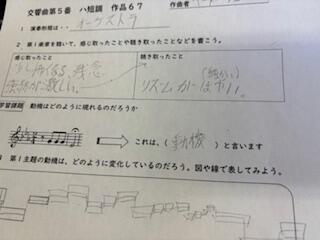 交響曲第5番 ハ短調 作品67
作曲者
1 演奏形態は・・ オーケストラ
2 第1楽章を聴いて、感じ取ったことや聴き取ったことなどを書こう。
感じ取ったこと
聴き取ったこと
残念
激しい。
(細かい)
リズムが はやい。
学習課題 動機はどのように現れるのだろうか
これは、(動機)と言います
3 第1主題の動機は、どのように変化しているのだろう。図や線で表してみよう。